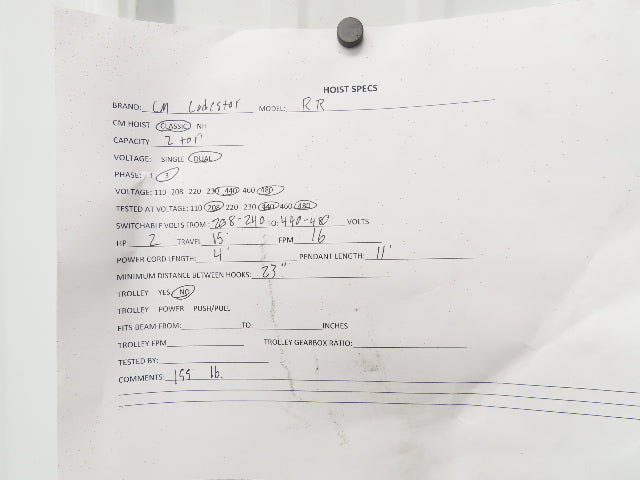 HOIST SPECS
BRAND: CM Lodestar MODEL: RR
CM HOIST CLASSIC NH
CAPACITY 2 ton
VOLTAGE: SINGLE DUAL
PHASE: 1 3
VOLTAGE: 110 208 220 230 440 460 480
TESTED AT VOLTAGE: 110 208 220 230 440 460 480
SWITCHABLE VOLTS FROM: 208-240 TO: 440-480 VOLTS
HP 2 TRAVEL 15' FPM 16
POWER CORD LENGTH: 4' PENDANT LENGTH: 11'
MINIMUM DISTANCE BETWEEN HOOKS: 23"
TROLLEY YES NO
TROLLEY POWER PUSH/PULL
FITS BEAM FROM: TO: INCHES
TROLLEY FPM TROLLEY GEARBOX RATIO:
TESTED BY:
COMMENTS: 155 lb.